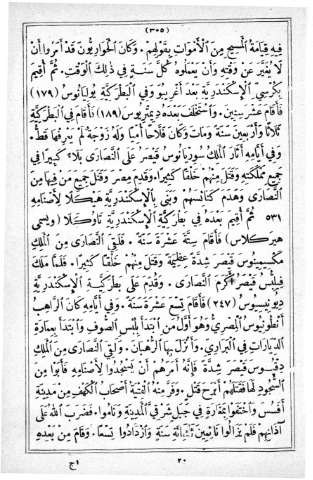 (٣٠٥)
فيه قيامة المسيح من الأموات بقولهم . وكان الحواريون قد أمروا أن
لا يغير عن وقته وأن يعملوه كل سنة في ذلك الوقت. ثم أقيم
بكرسي الإسكندرية بعد أغريبو وفي البطركية يوليانوس (١٧٩)
فأقام عشر سنين . واستخلف بعده ديمتريوس (١٨٩) فأقام في البطركية
ثلاثا وأربعين سنة ومات وكان فلاحا أميا وله زوجة لم يعرفها قط .
وفي أيامه أثار الملك سوريانوس قيصر على النصارى بلاء كبيرا في
جميع مملكته وقتل منهم خلقا كثيرا . وقدم مصر وقتل جميع من فيها من
النصارى وهدم كنائسهم وبنى بالإسكندرية هيكلا لأصنامه
٥٣١ ثم أقيم بعده في بطركية الإسكندرية تاوكلا (ويسمى
هيركلاس) فأقام ستة عشرة سنة . فلقي النصارى من الملك
مكسيمينوس قيصر شدة عظيمة وقتل منهم خلقا كثيرا . فلما ملك
فيلبس قيصر أكرم النصارى . وقدم على بطركية الإسكندرية
ديونيسيوس (٢٤٧) فأقام تسع عشرة سنة . وفي أيامه كان الراهب
أنطونيوس المصري وهو أول من ابتدأ بلبس الصوف وابتدأ بعمارة
الديارات في البراري . وأنزل بها الرهبان . ولقي النصارى من الملك
دقيوس قيصر شدة فإنه أمرهم أن يسجدوا لأصنامه فأبوا من
السجود لها فقتلهم أبرح قتل . وفر منه الفتية أصحاب الكهف من مدينة
أفسس واختفوا بمغارة في جبل شرقي المدينة وناموا . فضرب الله على
آذانهم فلم يزالوا نائمين ثلثمائة سنة وازدادوا تسعا . وقام من بعده
٢٠ ج٦